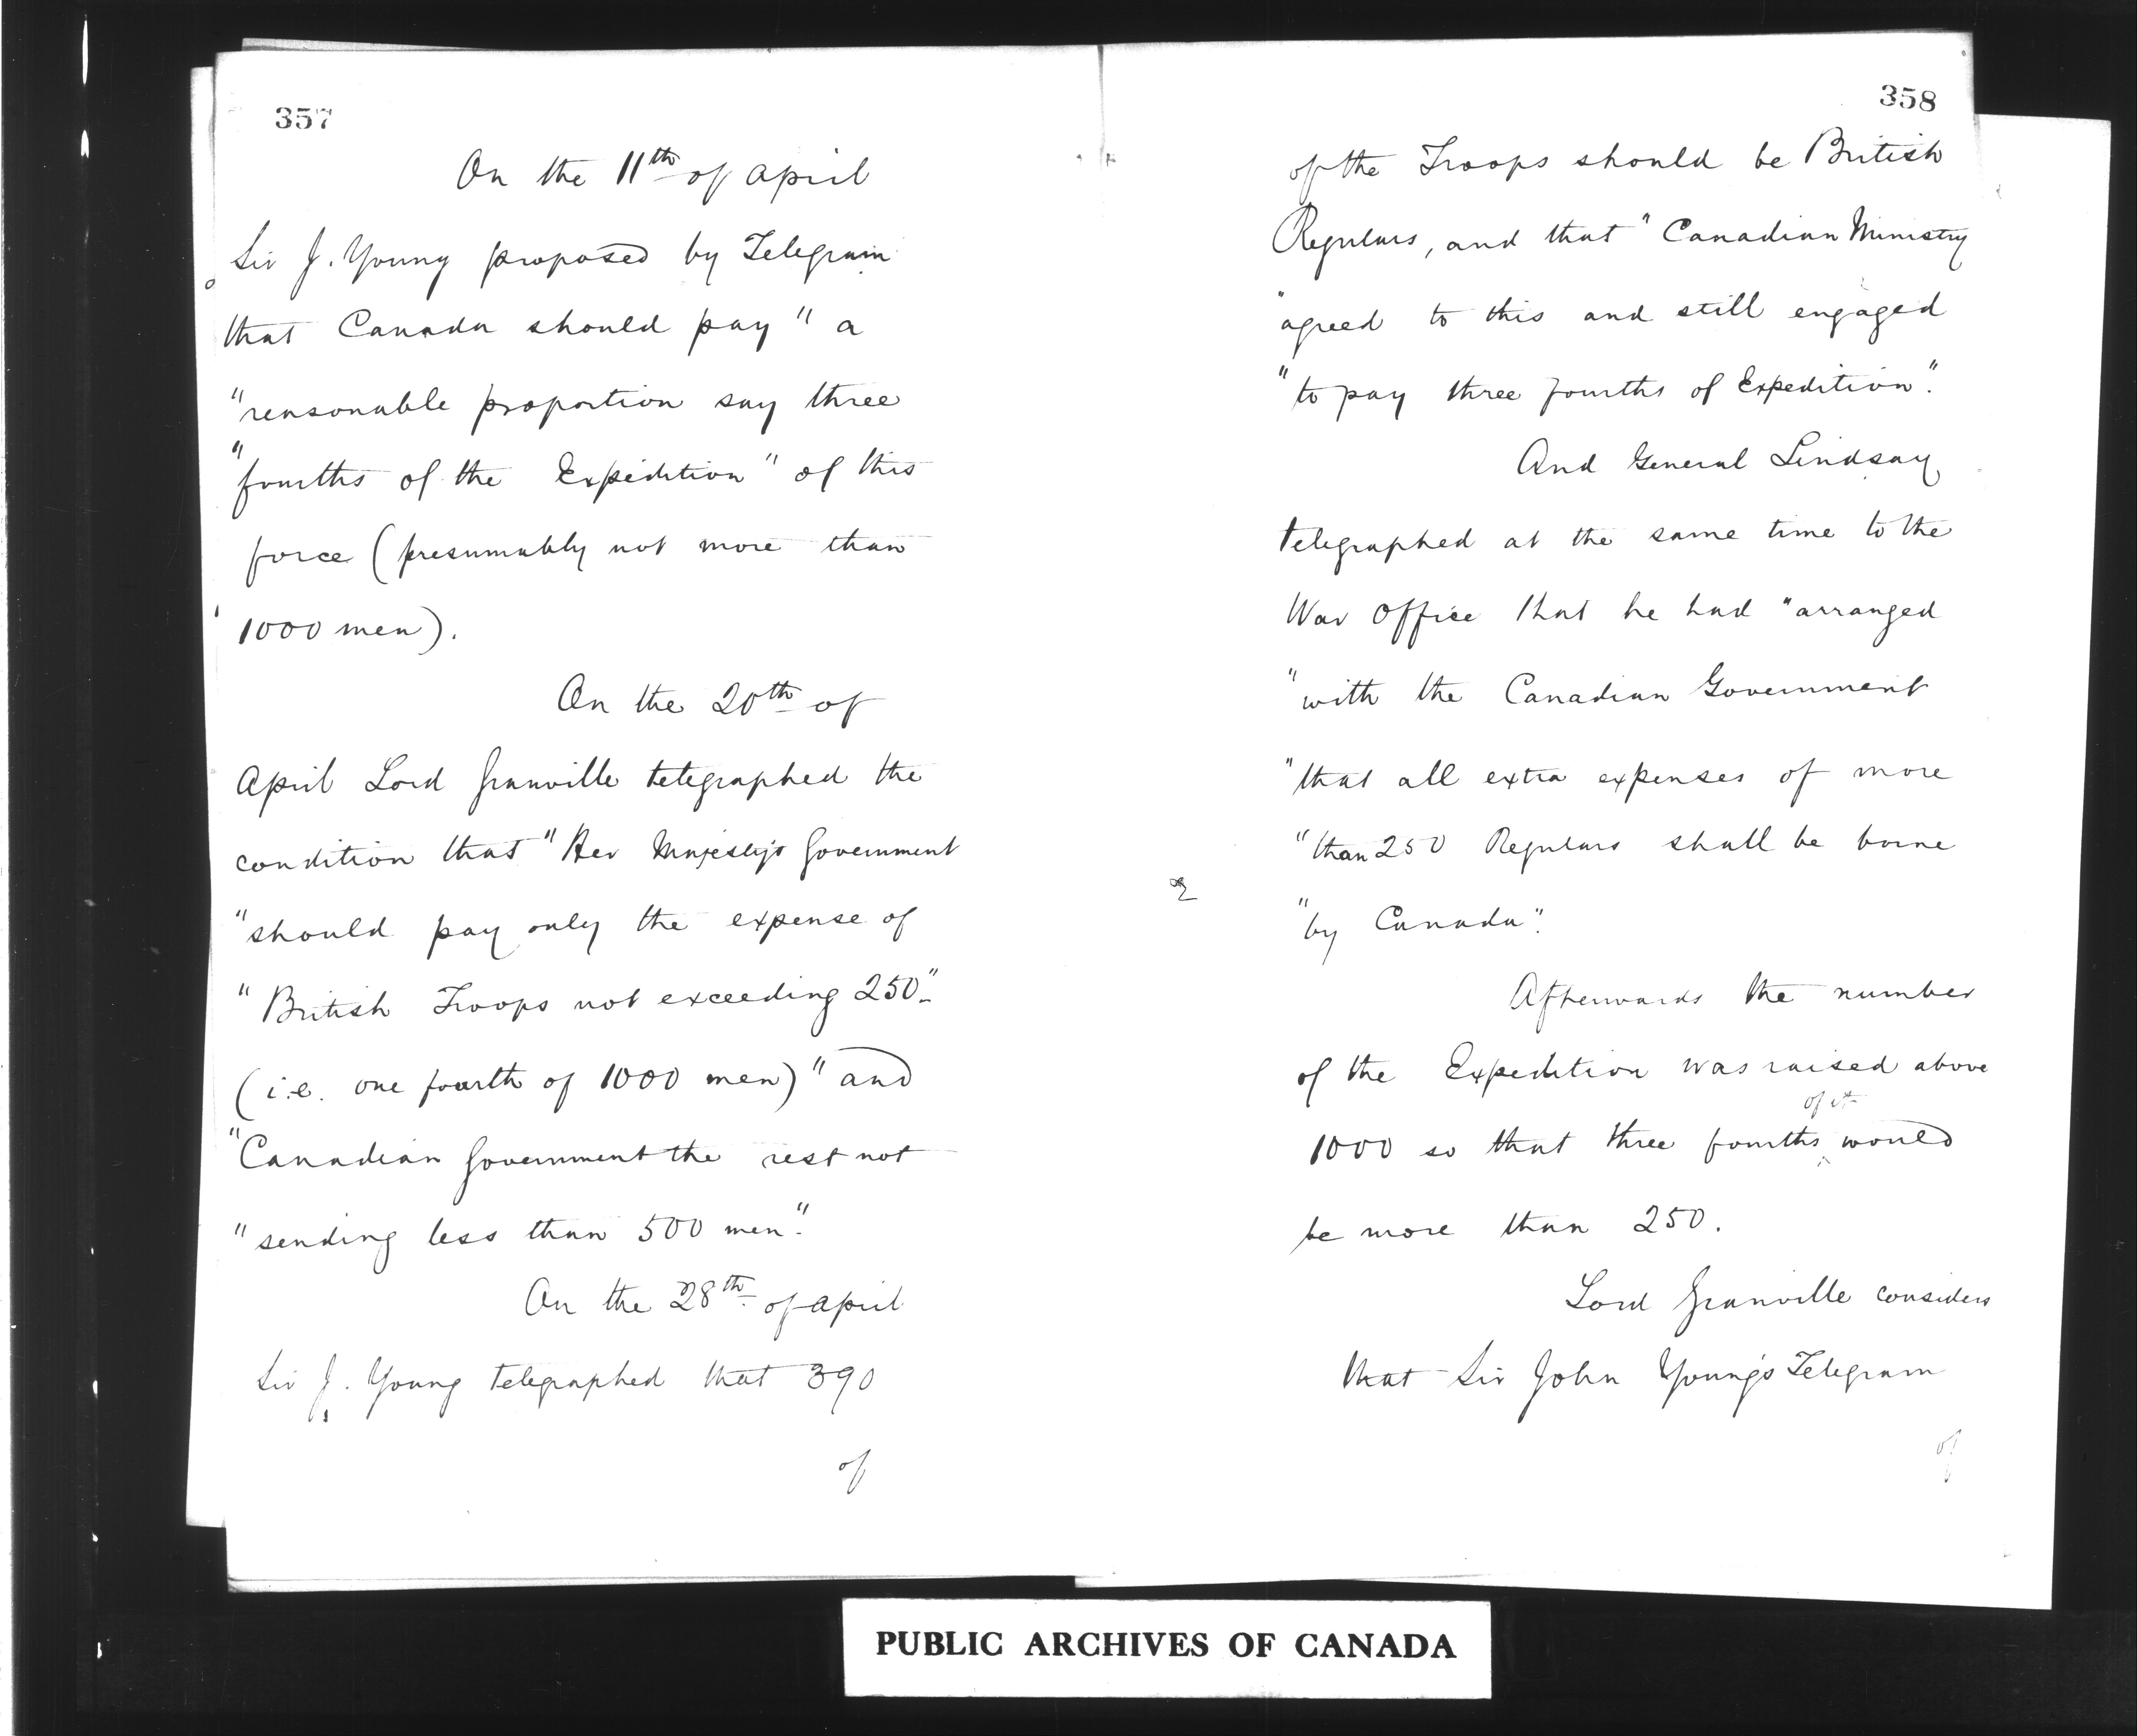 357
On the 11th of April
Sir J. Young proposed by Telegram
that Canada should pay "a
"reasonable proportion say three
"fourths of the Expedition" of this
force (presumably not more than
1000 men).
On the 20th of
April Lord Granville telegraphed the
condition that "Her Majesty's Government
"should pay only the expense of
"British Troops not exceeding 250"
(i.e. one fourth of 1000 men) "and
"Canadian Government the rest not
"sending less than 500 men".
On the 28th of April
Sir J. Young telegraphed that 390
of
358
of the Troops should be British
Regulars, and that "Canadian Ministry
"agreed to this and still engaged
"to pay three fourths of Expedition".
And General Lindsay
telegraphed at the same time to the
War Office that he had "arranged
"with the Canadian Government
"that all extra expenses of more
"than 250 Regulars shall be borne
"by Canada".
Afterwards the number
of the Expedition was raised above
1000 so that three fourths of it would
be more than 250.
Lord Granville considers
that Sir John Young's Telegram
of
PUBLIC ARCHIVES OF CANADA